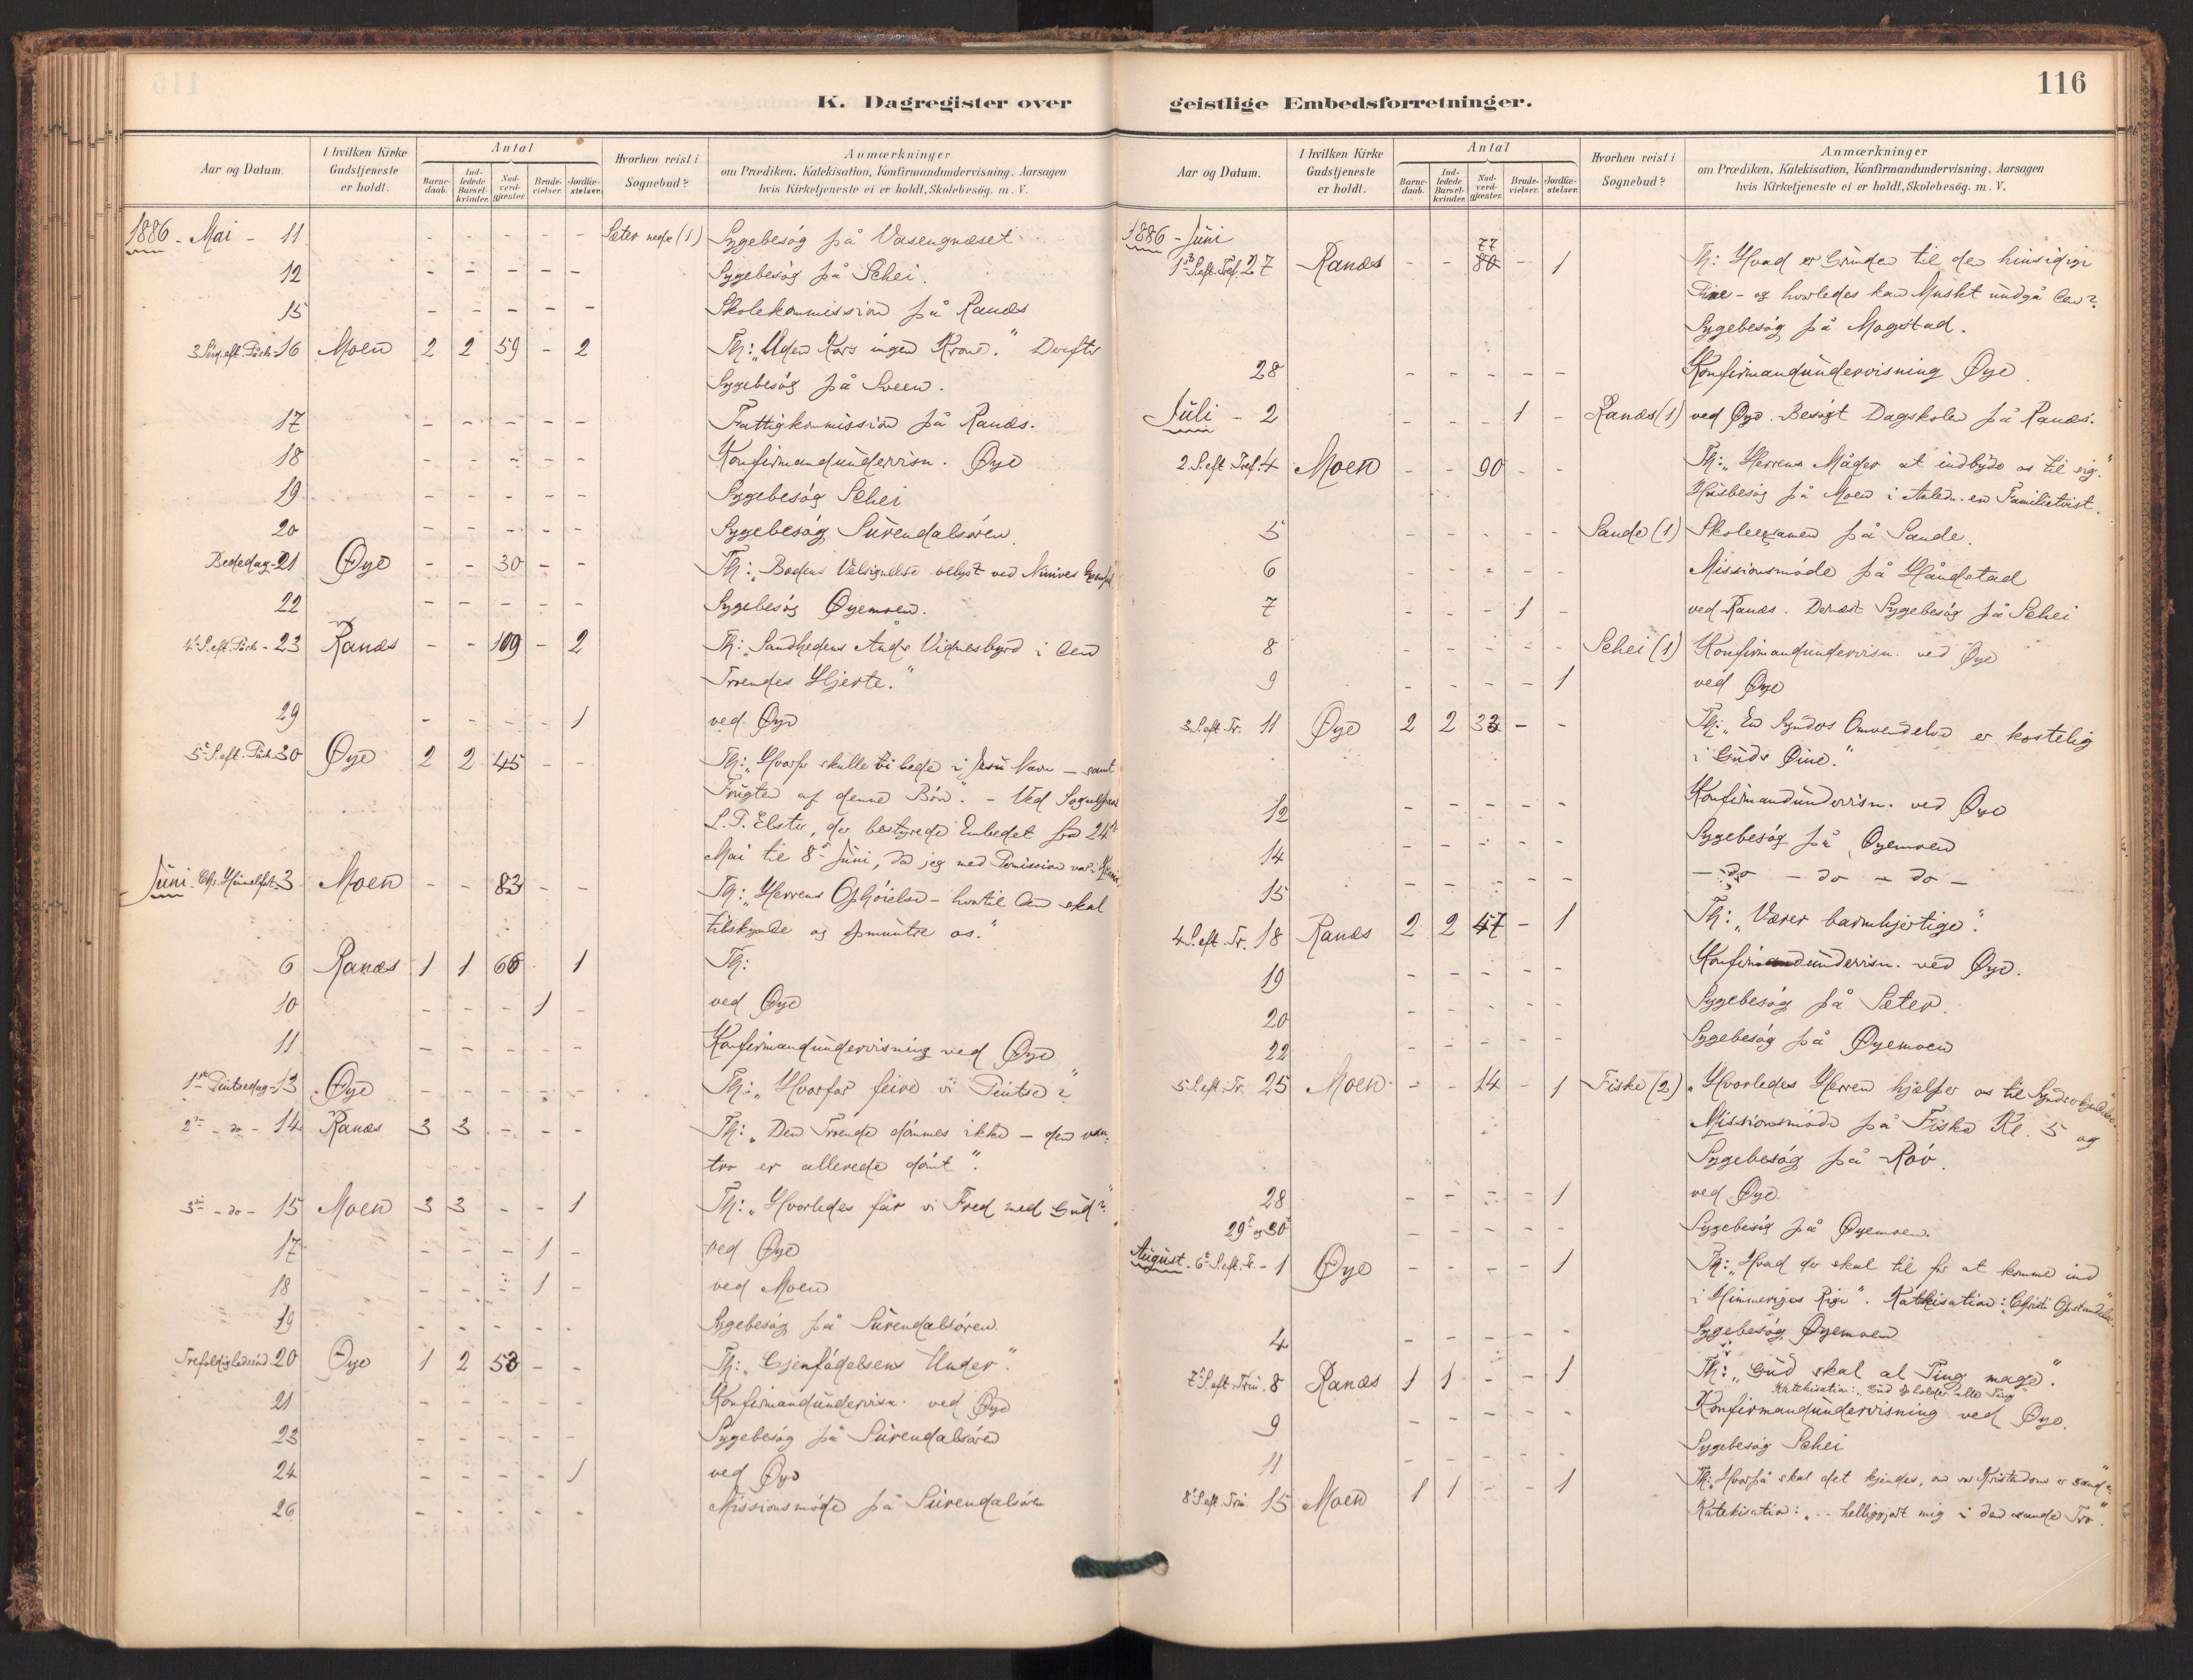 K. Dagregister over
Aar og Datum.
I hvilken Kirke Gudstjeneste er holdt.
Antal
Barnedaab.
Indledede Barselkvinder.
Nadverdgjæster.
Brudevielser.
Jordfæstelser.
Hvorhen reist i Sognebud?
Anmærkninger
om Prædiken, Katekisation, Konfirmandundervisning, Aarsagen
hvis Kirketjeneste ei er holdt, Skolebesøg. m. V.
1886 - Mai - 11 - - - - - Sæter nedre (1) Sygebesøg på Vasengnæset
12 - - - - - Sygebesøg på Schei.
15 - - - - - Skolekommission på Ranæs
3 Søgd. eft. Påsk. 16 Moen 2 2 59 - 2 Th: „Uden Kors ingen Krone." Derefter
Sygebesøg på Sveen.
17 - - - - - Fattigkommission på Ranæs.
18 - - - - - Konfirmandundervisn. Øye
19 - - - - - Sygebesøg Schei
20 - - - - - Sygebesøg Surendalsøren
Bededag - 21 Øye - - 30 - - Th: „Bodens Velsignelse belyst ved Ninives
22 - - - - - Sygebesøg Øyemoen.
4 S. eft. Påsk - 23 Ranæs - - 109 - 2 Th: „Sandhedens Ånds Vidnesbyrd i den
Troendes Hjerte."
29 - - - - 1 ved Øye
5 S. eft. Påsk. 30 Øye 2 2 45 - - Th: „Hvorfor skulle vi bede i Jesu Navn - samt
Frugten af denne Bøn". - Ved Sognepræst
Elster, der bestyrede Embedet fra 24
Mai til 8 Juni, da jeg med Permission var
Juni Chr. Himmelfart 3 Moen - - 83 - - Th: „Herrens Ophøielse - hvortil den skal
tilskynde og opmuntre os."
6 Ranæs 1 1 66 1 Th:
10 - - - 1 - ved Øye
11 - - - - - Konfirmandundervisning ved Øye
1ste Pintsedag - 13 Øye - - - - - Th: „Hvorfor feire vi Pintse?"
2 - do - 14 Ranæs 3 3 - - - Th: „Den Troende dømmes ikke - den van-
tro er allerede dømt".
3 - do - 15 Moen 3 3 - - 1 Th: „Hvorledes får vi Fred med Gud?"
17 - - - 1 - ved Øye
18 - - - 1 - ved Moen
19 - - - - - Sygebesøg på Surendalsøren
Trefoldighedssønd. 20 Øye 1 2 53 - - Th: „Gjenfødelsens Under".
21 - - - - - Konfirmandundervisn. ved Øye
23 - - - - - Sygebesøg på Surendalsøren
24 - - - - 1 ved Øye
26 - - - - - Missionsmøde på Surendalsøren
116
geistlige Embedsforretninger.
Aar og Datum.
I hvilken Kirke Gudstjeneste er holdt.
Antal
Barnedaab.
Indledede Barselkvinder.
Nadverdgjæster.
Brudevielser.
Jordfæstelser.
Hvorhen reist i Sognebud?
Anmærkninger
om Prædiken, Katekisation, Konfirmandundervisning, Aarsagen
hvis Kirketjeneste ei er holdt, Skolebesøg. m. V.
1886 - Juni
77
1 S. eft. Tref. 27 Ranæs - - 80 - 1 Th: Hvad er Grunden til den hinsidige
Pine - og hvorledes kan Mnskt undgå den?
Sygebesøg på Mogstad.
28 - - - - - Konfirmandundervisning Øye
Juli - 2 - - - 1 - Ranæs (1) ved Øye. Besøgt Dagskolen på Ranæs.
2. S. eft. Tref. 4 Moen - - 90 - - Th: „Herrens Måder at indbyde os til sig."
Husbesøg på Moen i Anledn. en Familietvist.
5 - - - - - Sande (1) Skoleexamen på Sande.
6 Missionsmøde på Håndstad
7 - - - 1 - ved Ranæs. Dernæst Sygebesøg på Schei
8 - - - - - Schei (1) Konfirmandundervisn. ved Øye
9 - - - - 1 ved Øye
3 S. eft. Tr. 11 Øye 2 2 33 - - Th: „En Synders Omvendelse er kostelig
i Guds Øine."
12 - - - - - Konfirmandundervisn. ved Øye
14 - - - - - Sygebesøg på Øyemoen
15 - - - - - - do - do - do -
4 S. eft. Tr. 18 Ranæs 2 2 47 - 1 Th: „Værer barmhjertige".
19 - - - - - Konfirmandundervisn. ved Øye.
20 - - - - - Sygebesøg på Sæter.
22 - - - - - Sygebesøg på Øyemoen
5 S. eft. Tr. 25 Moen - - 14 - 1 Fiske (2) „Hvorledes Herren hjælper os til Synderkjendelse"
Missionsmøde på Fiske Kl. 5 og
Sygebesøg på Røv.
28 - - - - 1 ved Øye
29 og 30 - - - - - Sygebesøg på Øyemoen.
August - 6 S. eft. Tr. - 1 Øye - - - - 1 Th: „Hvad der skal til for at komme ind
i Himmeriges Rige". Katekisation: „Christi Opstandelse."
4 - - - - - Sygebesøg Øyemoen
7 S. eft. Trin. 8 Ranæs 1 1 - - 1 Th: „Gud skal al Ting mage".
Katekisation: „Gud opholder alle Ting"
9 - - - - - Konfirmandundervisning ved Øye.
11 - - - - - Sygebesøg Schei
8 S. eft. Trin. 15 Moen 1 1 - - 1 Th: „Hvorpå skal det kjendes, om vor Kristendom er sand?"
Katekisation: „-- helliggjort mig i den sande Tro".